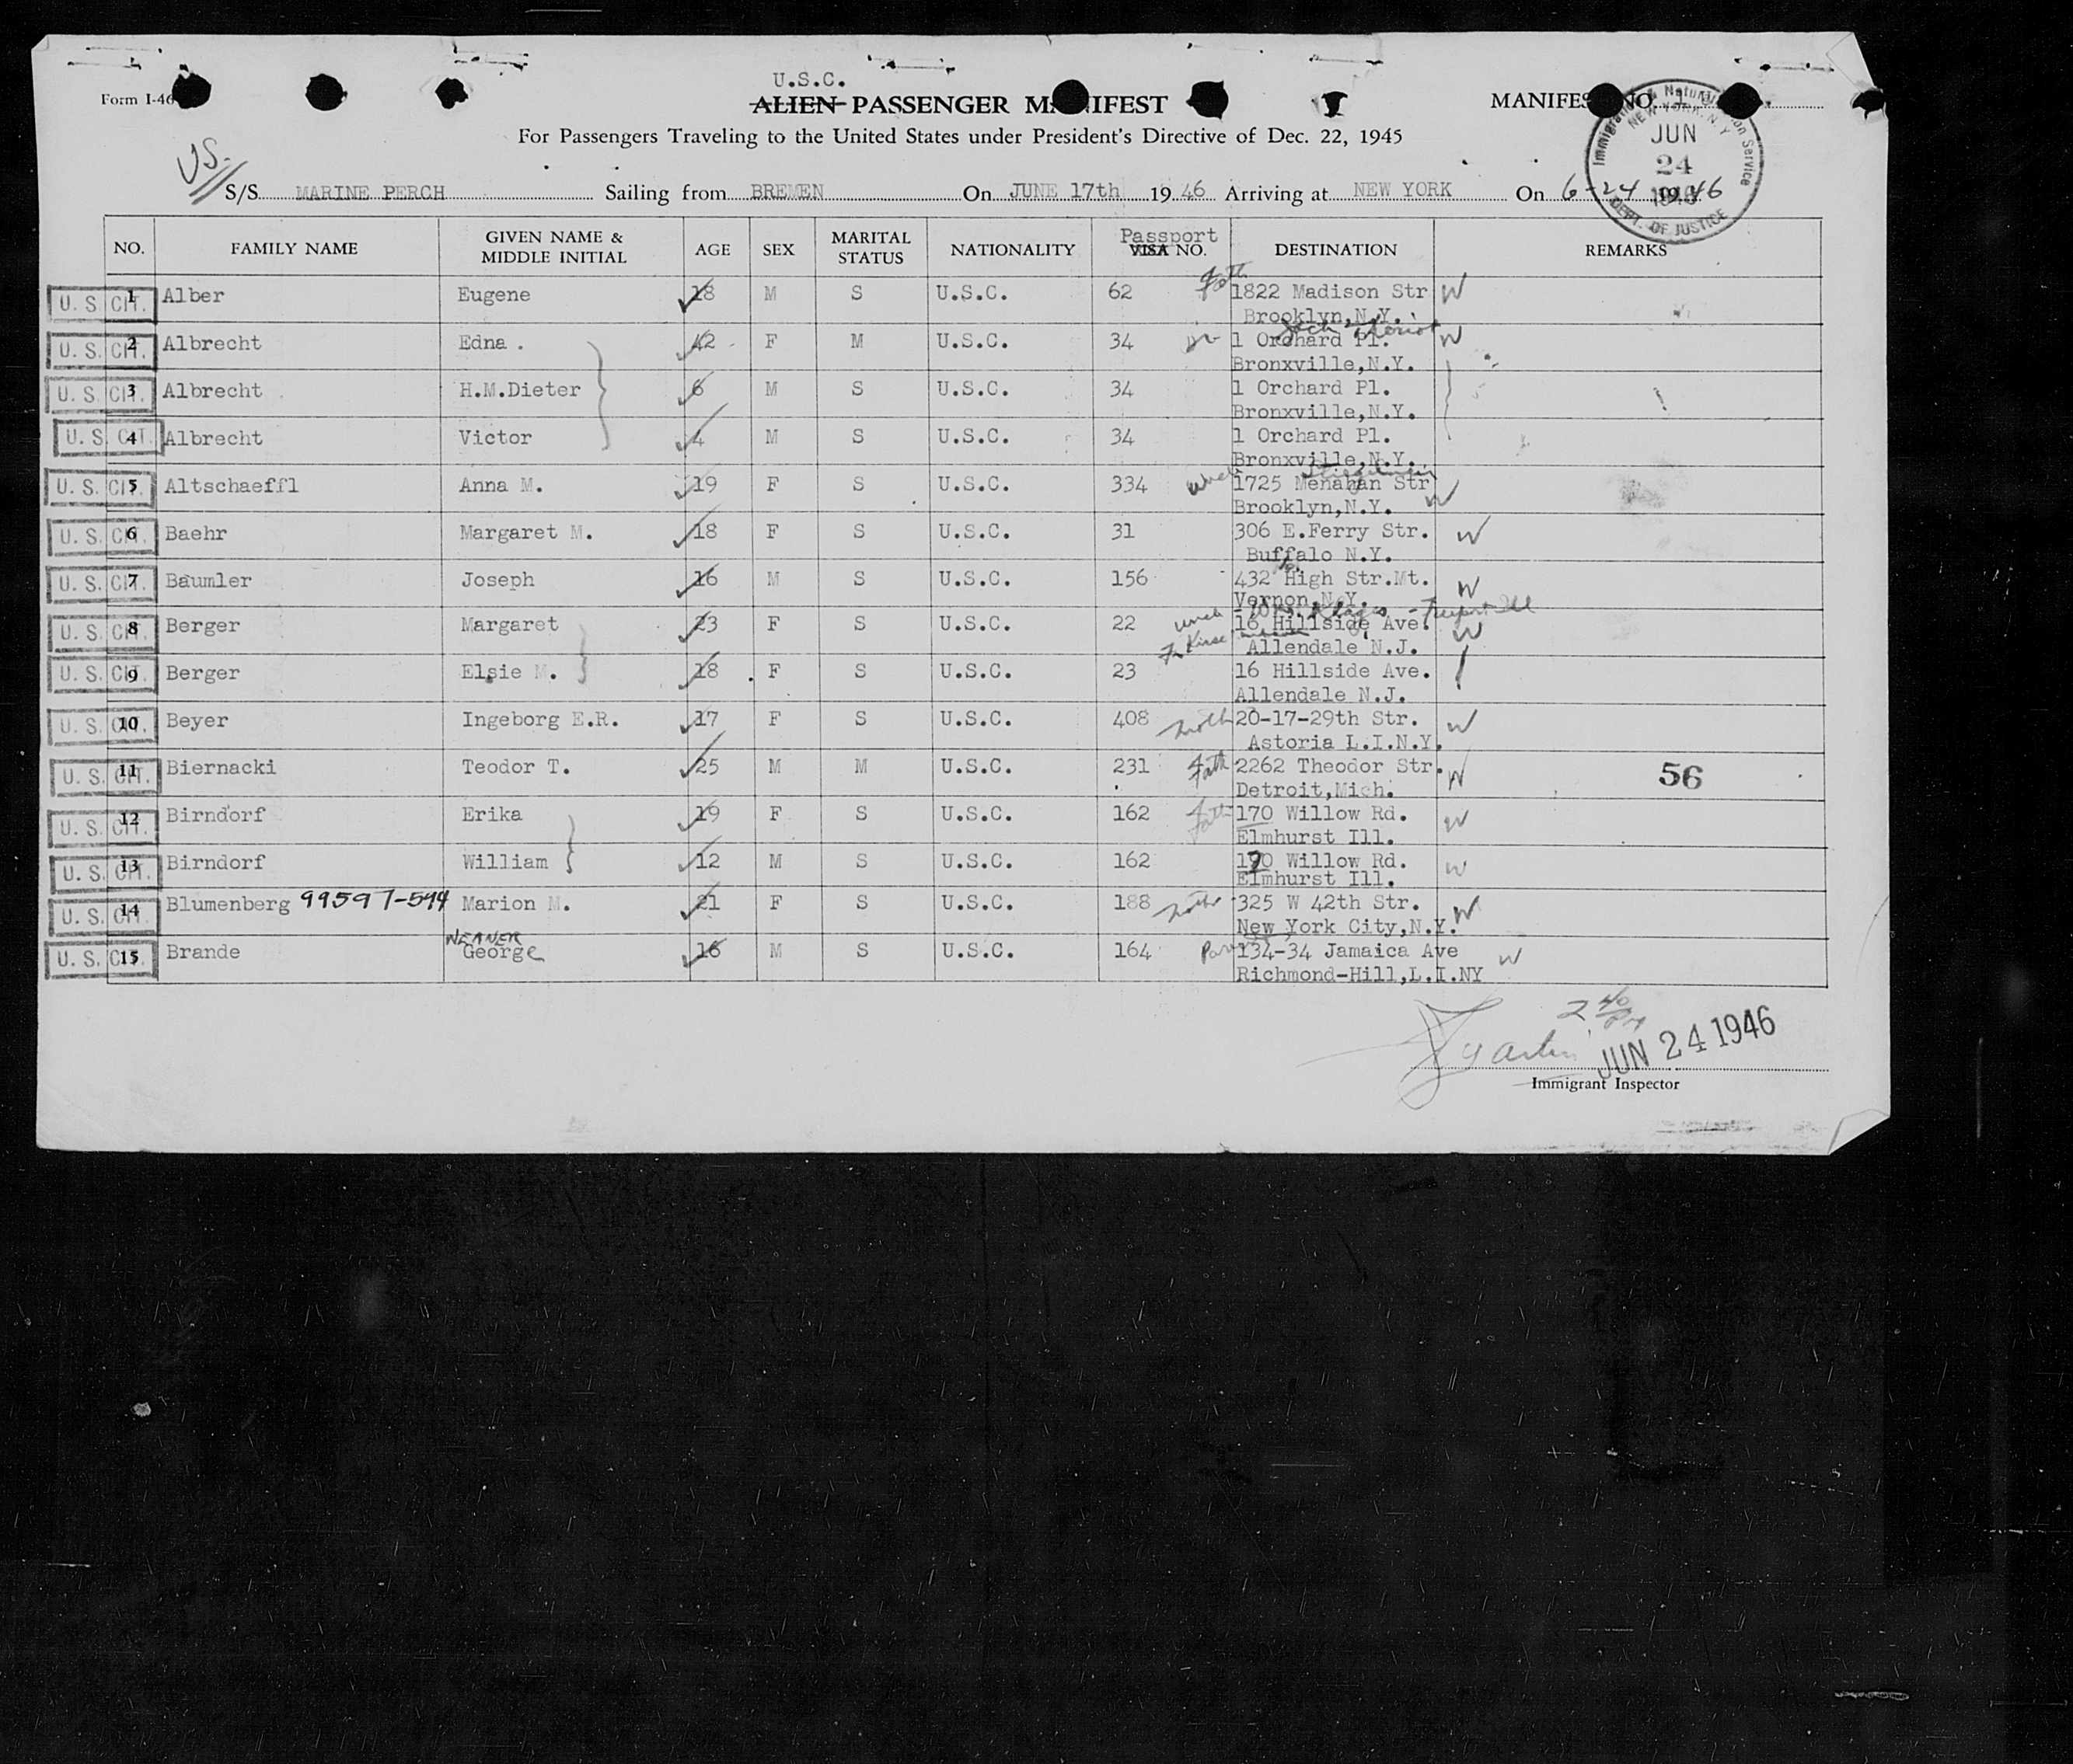 U.S.C.
Form I-46
ALIEN PASSENGER MANIFEST
MANIFEST NO. 1
For Passengers Traveling to the United States under President's Directive of Dec. 22, 1945
Immigration & Naturalization Service
NEW YORK, N.Y.
JUN
24
1946
DEPT. OF JUSTICE
US.
S/S MARINE PERCH Sailing from BREMEN On JUNE 17th 19 46 Arriving at NEW YORK On 6-24 1946
NO. FAMILY NAME GIVEN NAME & MIDDLE INITIAL AGE SEX MARITAL STATUS NATIONALITY Passport VISA NO. DESTINATION REMARKS
U. S. CIT. 1 Alber Eugene 18 M S U.S.C. 62 Fath 1822 Madison Str W
Brooklyn,N.Y.
U. S. CIT. 2 Albrecht Edna . 42 F M U.S.C. 34 1 Orchard Pl. W
Bronxville,N.Y.
U. S. CIT. 3 Albrecht H.M.Dieter 6 M S U.S.C. 34 1 Orchard Pl.
Bronxville,N.Y.
U. S. CIT. 4 Albrecht Victor 4 M S U.S.C. 34 1 Orchard Pl.
Bronxville,N.Y.
U. S. CIT. 5 Altschaeffl Anna M. 19 F S U.S.C. 334 uncle 1725 Menahan Str
Brooklyn,N.Y. W
U. S. CIT. 6 Baehr Margaret M. 18 F S U.S.C. 31 306 E.Ferry Str. W
Buffalo N.Y.
U. S. CIT. 7 Baumler Joseph 16 M S U.S.C. 156 432 High Str.Mt. W
Vernon,N.Y.
U. S. CIT. 8 Berger Margaret 23 F S U.S.C. 22 uncle 16 Hillside Ave. W
Allendale N.J.
U. S. CIT. 9 Berger Elsie M. 18 F S U.S.C. 23 16 Hillside Ave.
Allendale N.J.
U. S. CIT. 10 Beyer Ingeborg E.R. 17 F S U.S.C. 408 Moth 20-17-29th Str. W
Astoria L.I.N.Y.
U. S. CIT. 11 Biernacki Teodor T. 25 M M U.S.C. 231 Fath 2262 Theodor Str. W
Detroit,Mich.
56
U. S. CIT. 12 Birndorf Erika 19 F S U.S.C. 162 Fath 170 Willow Rd. W
Elmhurst Ill.
U. S. CIT. 13 Birndorf William 12 M S U.S.C. 162 170 Willow Rd. W
Elmhurst Ill.
U. S. CIT. 14 Blumenberg 99597-594 Marion M. 21 F S U.S.C. 188 Moth 325 W 42th Str. W
New York City,N.Y.
WERNER
U. S. CIT. 15 Brande George 16 M S U.S.C. 164 Par 134-34 Jamaica Ave W
Richmond-Hill,L.I.NY
2 40 PM
JUN 24 1946
Immigrant Inspector